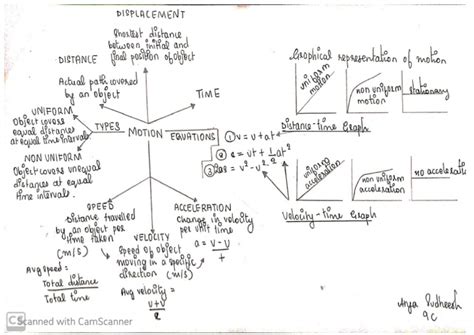 DISPLACEMENT
Shortest distance
between initial and
final position of object
DISTANCE
Actual path covered
by an object
TIME
UNIFORM
Object covers
equal distances
at equal time intervals
TYPES
NON UNIFORM
Object covers unequal
distances at equal
time intervals.
MOTION
EQUATIONS
① v = u + at
② s = ut + 1/2 at²
③ 2as = v² - u²
SPEED
Distance travelled
by an object per
time taken
(m/s)
Avg speed =
Total distance
Total time
VELOCITY
Speed of object
moving in a specific
direction (m/s)
Avg velocity =
u+v
2
ACCELERATION
change in velocity
per unit time
a = v - u
t
Graphical representation of motion
uniform
motion
non uniform
motion
stationary
Distance-time Graph
uniform
acceleration
non uniform
acceleration
no acceleration
Velocity-time Graph
9C
CS Scanned with CamScanner